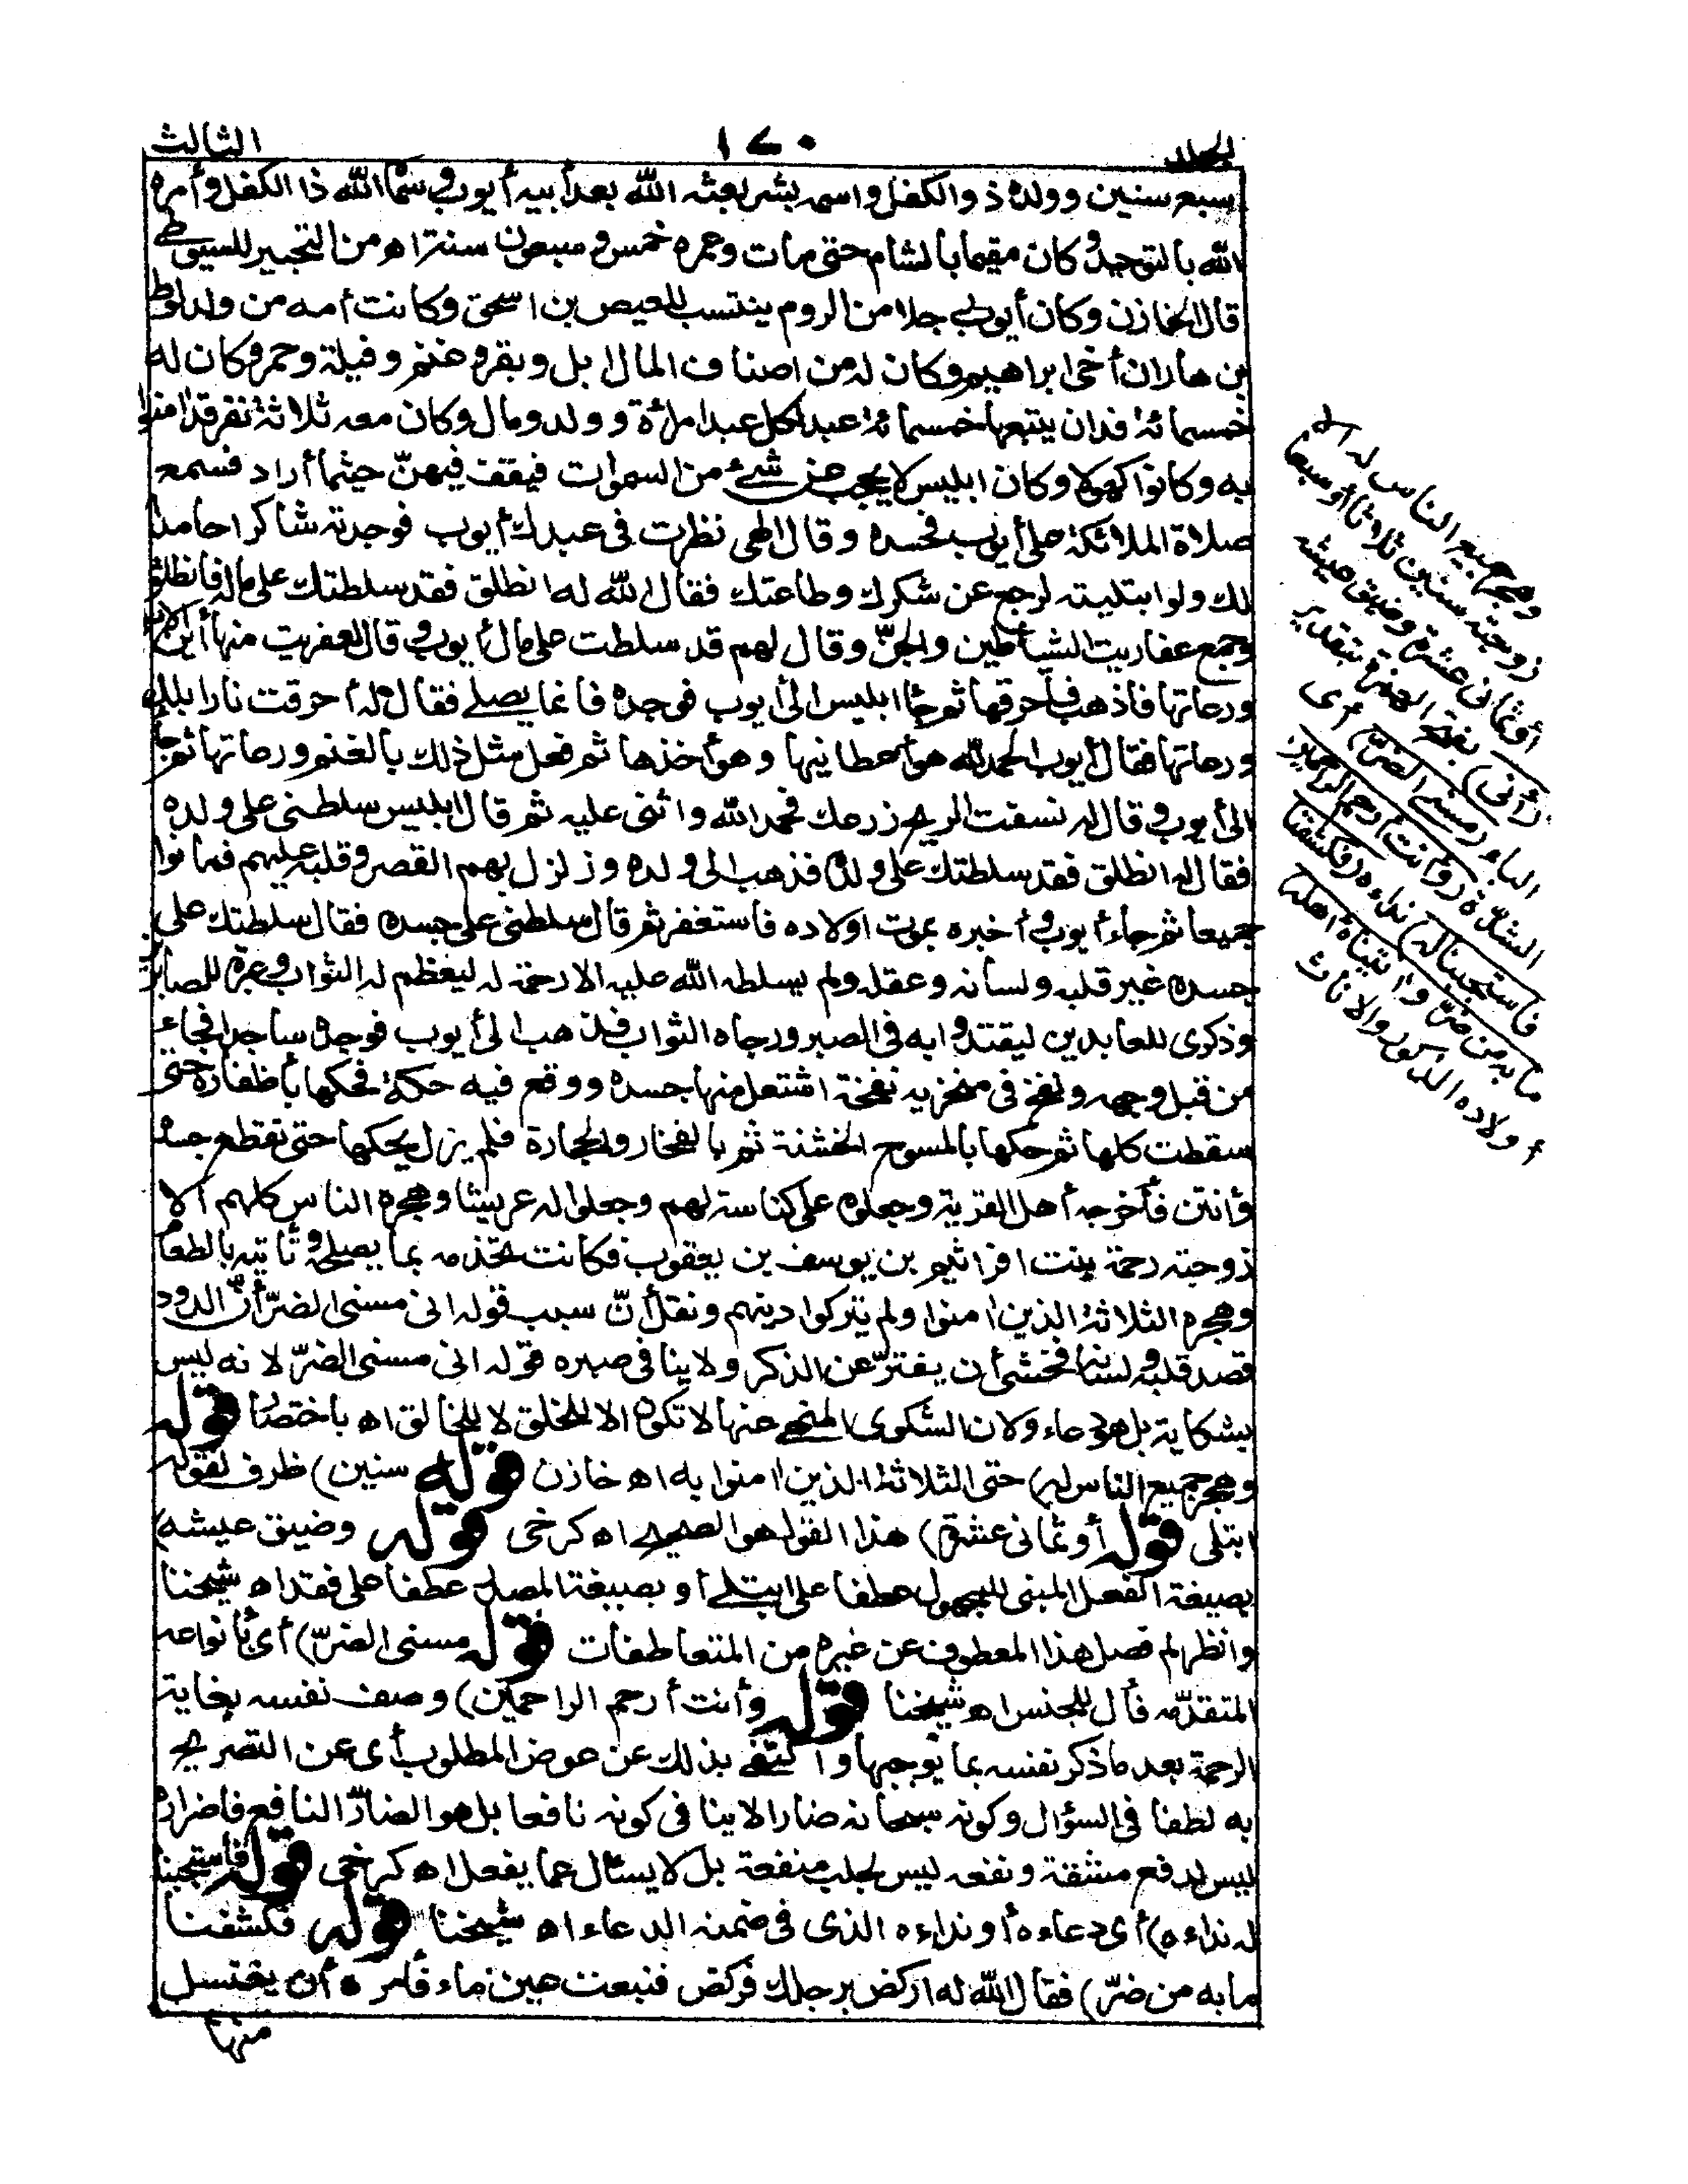 الجلد ١٤٠ الثالث
سبع سنين وولده ذو الكفل واسمه بشر بعثه الله بعد أبيه أيوب وسماه الله ذا الكفل وأمره
الله بالتوحيد وكان مقيما بالشام حتى مات وعمره خمس وسبعون سنة اه من التحبير للسيوطي
قال الخازن وكان أيوب رجلا من الروم ينتسب للعيص بن اسحق وكانت أمه من ولد لوط
بن هاران أخى ابراهيم وكان له من اصناف المال ابل وبقر وغنم وفيلة وحمر وكان له
خمسمائة فدان يتبعها خمسمائة عبد لكل عبد امرأة وولد ومال وكان معه ثلاثة نفر قد امنوا
به وكانوا كهولا وكان ابليس لا يحجب عن شئ من السموات فيقف فيهنّ حيثما أراد فسمع
صلاة الملائكة على أيوب فحسده وقال الهى نظرت فى عبدك أيوب فوجدته شاكرا حامدا
لك ولو ابتليته لرجع عن شكرك وطاعتك فقال الله له انطلق فقد سلطتك على ماله فانطلق
وجمع عفاريت الشياطين والجنّ وقال لهم قد سلطت على مال أيوب وقال لعفريت منها أين الابل
ورعاتها فاذهب فأحرقها ثم جاء ابليس الى أيوب فوجده قائما يصلى فقال له أحرقت نار ابلك
ورعاتها فقال أيوب الحمد لله هو أعطانيها وهو أخذها ثم فعل مثل ذلك بالغنم ورعاتها ثم جاء
الى أيوب وقال له نسفت الريح زرعك فحمد الله واثنى عليه ثم قال ابليس سلطنى على ولده
فقال له انطلق فقد سلطتك على ولده فذهب الى ولده وزلزل بهم القصر وقلبه عليهم فماتوا
جميعا ثم جاء أيوب وأخبره بموت اولاده فاستغفر ثم قال سلطنى على جسده فقال سلطتك على
جسده غير قلبه ولسانه وعقله ولم يسلطه الله عليه الا رحمة له ليعظم له الثواب وعبرة للصابرين
وذكرى للعابدين ليقتدوا به فى الصبر ورجاء الثواب فذهب الى أيوب فوجده ساجدا فجاء
من قبل وجهه ونفخ فى منخريه نفخة اشتعل منها جسده ووقع فيه حكة فحكها بأظفاره حتى
سقطت كلها ثم حكها بالمسوح الخشنة ثم بالفخار والحجارة فلم يزل يحكها حتى تقطع جسده
وأنتن فأخرجه أهل القرية وجعلوه على كناسة لهم وجعلوا له عريشا وهجره الناس كلهم الا
زوجته رحمة بنت افراثيم بن يوسف بن يعقوب فكانت تخدمه بما يصلحه وتأتيه بالطعام
وهجره الثلاثة الذين امنوا ولم يتركوا دينهم ونقل أنّ سبب قوله انى مسنى الضرّ أنّ الدود
قصد قلبه ولسانه فخشى أن يفترّ عن الذكر ولا ينافى صبره قوله انى مسنى الضرّ لانه ليس
بشكاية بل هو دعاء ولان الشكوى المنهى عنها لا تكون الا للخلق لا للخالق اه باختصار قوله
وهجر جميع الناس له) حتى الثلاثة الذين امنوا به اه خازن قوله سنين) ظرف لقوله
ابتلى قوله أو ثمانى عشرة) هذا القول هو الصحيح اه كرخى قوله وضيق عيشه)
بصيغة الفعل المبنى للمجهول عطفا على ابتلى أو بصيغة المصدر عطفا على فقد اه شيخنا
وانظر لم فصل هذا المعطوف عن غيره من المتعاطفات قوله مسنى الضرّ) أى بأنواعه
المتقدّمه فأل للجنس اه شيخنا قوله وأنت أرحم الراحمين) وصف نفسه بغاية
الرحمة بعد ما ذكر نفسه بما يوجبها واكتفى بذلك عن عوض المطلوب أى عن التصريح
به لطفا فى السؤال وكونه سبحانه ضارا لا ينافى كونه نافعا بل هو الضارّ النافع فاضراره
ليس لدفع مشقة ونفعه ليس لجلب منفعة بل لا يسئال عما يفعل اه كرخى قوله فاستجبنا
له نداءه) أى دعاءه أو نداءه الذى فى ضمنه الدعاء اه شيخنا قوله فكشفنا
ما به من ضرّ) فقال الله له اركض برجلك فركض فنبعت عين ماء فأمره أن يغتسل
منها
وهجر جميع الناس له الا
زوجته سنين ثلاثا أو سبعا
أو ثمانى عشرة وضيق عيشه
(أنى) بفتح الهمزة بتقدير
الباء (مسنى الضرّ) أى
الشدّة (وأنت أرحم الراحمين
فاستجبنا له) نداءه (فكشفنا
ما به من ضرّ واتيناه أهله)
أولاده الذكور والاناث